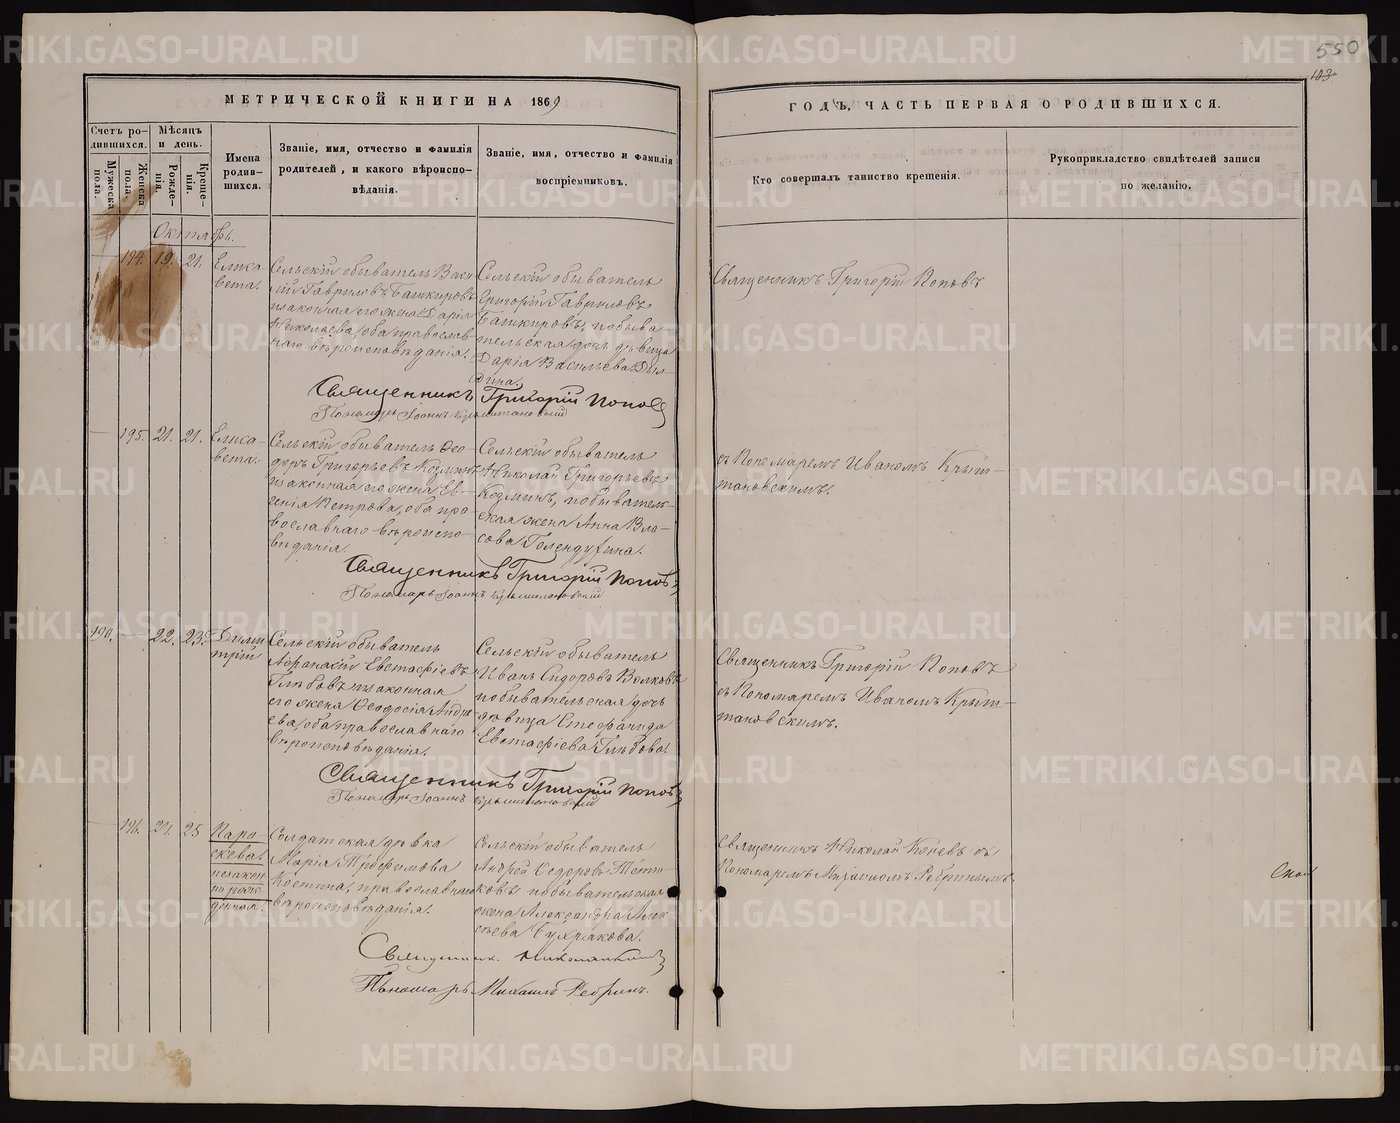 550
183
МЕТРИЧЕСКОЙ КНИГИ НА 1869
ГОДЪ, ЧАСТЬ ПЕРВАЯ О РОДИВШИХСЯ.
Счетъ ро-
дившихся.
Мужеска
пола.
Женска
пола.
Мѣсяцъ
и день.
Рожде-
нія.
Креще-
нія.
Имена
родив-
шихся.
Званіе, имя, отчество и фамилія
родителей, и какого вѣроиспо-
вѣданія.
Званіе, имя, отчество и фамилія
воспріемниковъ.
Кто совершалъ таинство крещенія.
Рукоприкладство свидѣтелей записи
по желанію.
Октябрь.
194. 19. 21.
Елиса-
вета.
Сельскій обыватель Васи-
лій Гавриловъ Башкировъ
и законная его жена Дарія
Николаева, оба православ-
наго вѣроисповѣданія.
Сельскій обыватель
Григорій Гавриловъ
Башкировъ, и обыва-
тельская дочь дѣвица
Дарія Васильева
Священникъ Григорій Поповъ
Священникъ Григорій Поповъ
Пономарь Іоаннъ
195. 21. 21.
Елиса-
вета.
Сельскій обыватель Ѳео-
доръ Григорьевъ Козминъ
и законная его жена Ев-
генія Петрова, оба пра-
вославнаго вѣроиспо-
вѣданія.
Сельскій обыватель
Николай Григорьевъ
Козминъ, и обыватель-
ская жена Анна Вла-
сова Голендухина.
съ Пономаремъ Иваномъ Кришт-
тановскимъ.
Священникъ Григорій Поповъ
Пономарь Іоаннъ
190. 22. 23.
Дими-
трій
Сельскій обыватель
Евстафіевъ
Глѣбовъ и законная
его жена Ѳеодосія Андре-
ева, оба православнаго
вѣроисповѣданія.
Сельскій обыватель
Иванъ Сидоровъ Волковъ
и обывательская дочь
дѣвица Стефанида
Евстафіева Глѣбова.
Священникъ Григорій Поповъ
съ Пономаремъ Иваномъ Крышт-
тановскимъ.
Священникъ Григорій Поповъ
Пономарь Іоаннъ
196. 24. 25
Пара-
скева.
незакон-
но рож-
денная.
Солдатская дѣвка
Марія Трофимова
Костина, православнаго
вѣроисповѣданія.
Сельскій обыватель
Андрей Ѳедоровъ
и обывательская
жена Александра Алек-
сѣева
Священникъ Николай
Пономаремъ Михаиломъ Ребринымъ.
Священник. Николай
Пономарь Михаилъ Ребринъ.